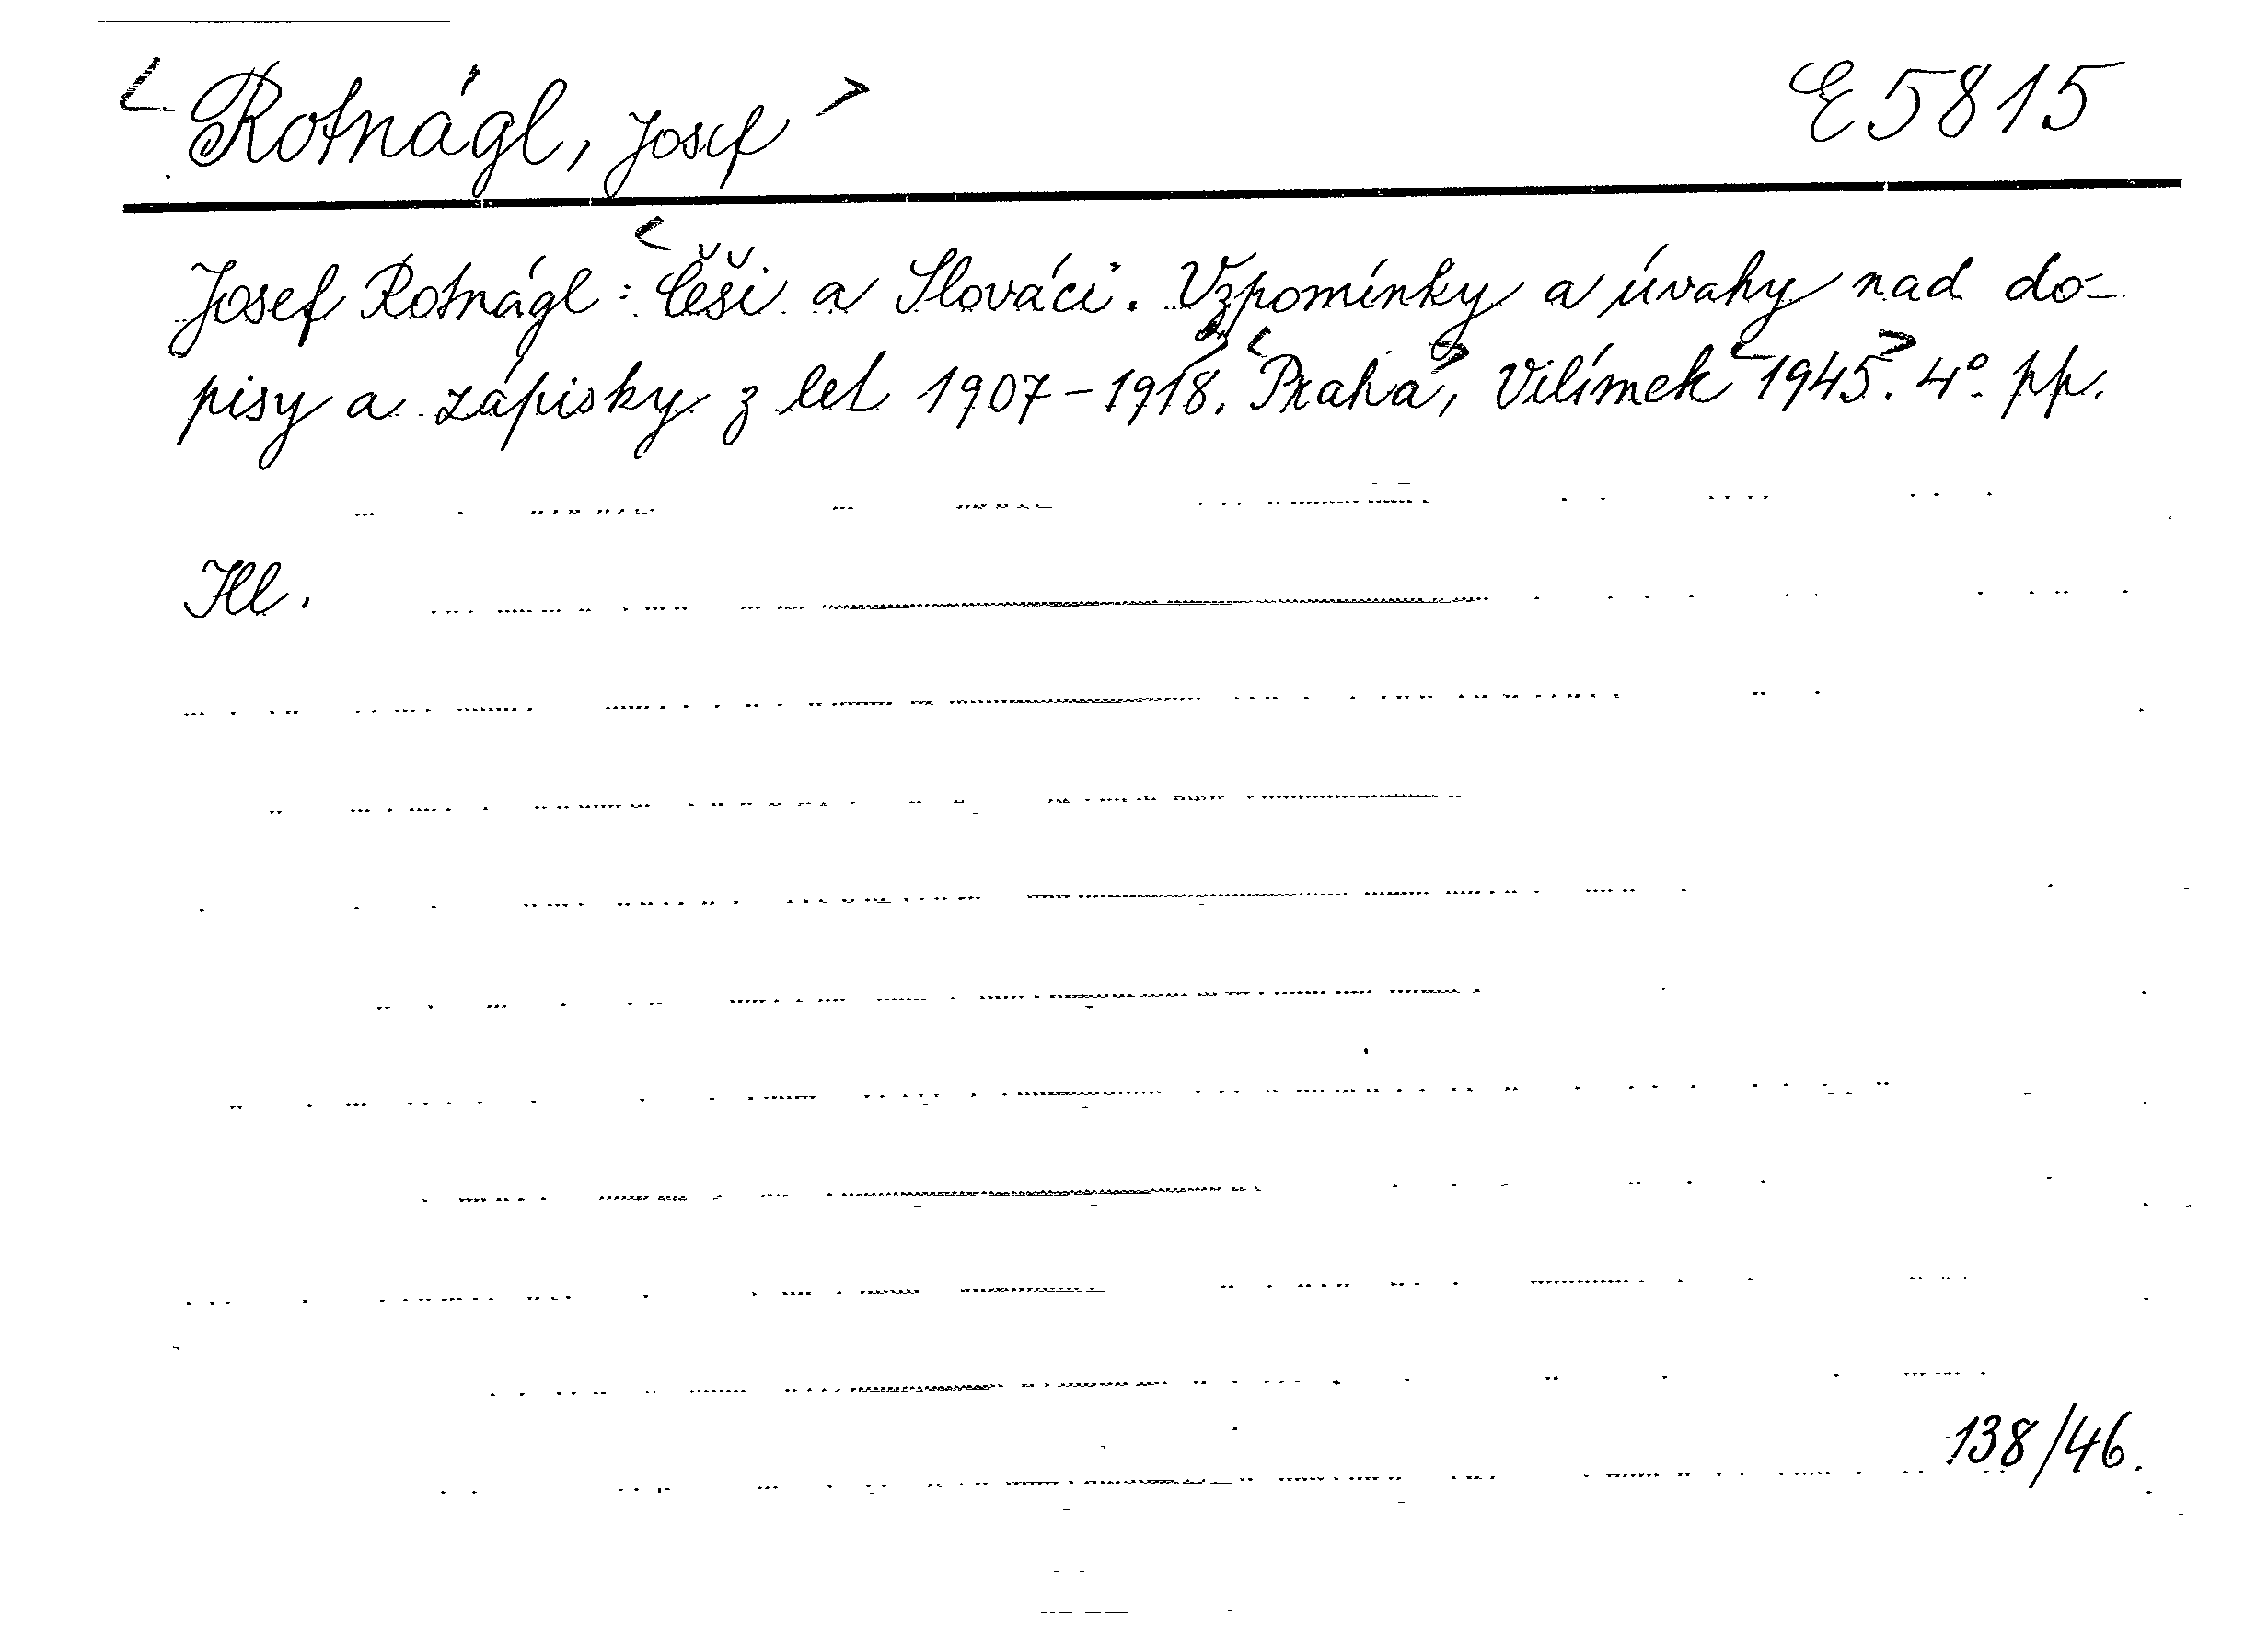 <Rotnágl, Josef> E5815
Josef Rotnágl: <Češi a Slováci. Vzpomínky a úvahy nad do-
pisy a zápisky z let 1907-1918.> <Praha>, Vilímek <1945>. 4° pp.
Ill.
138/46.